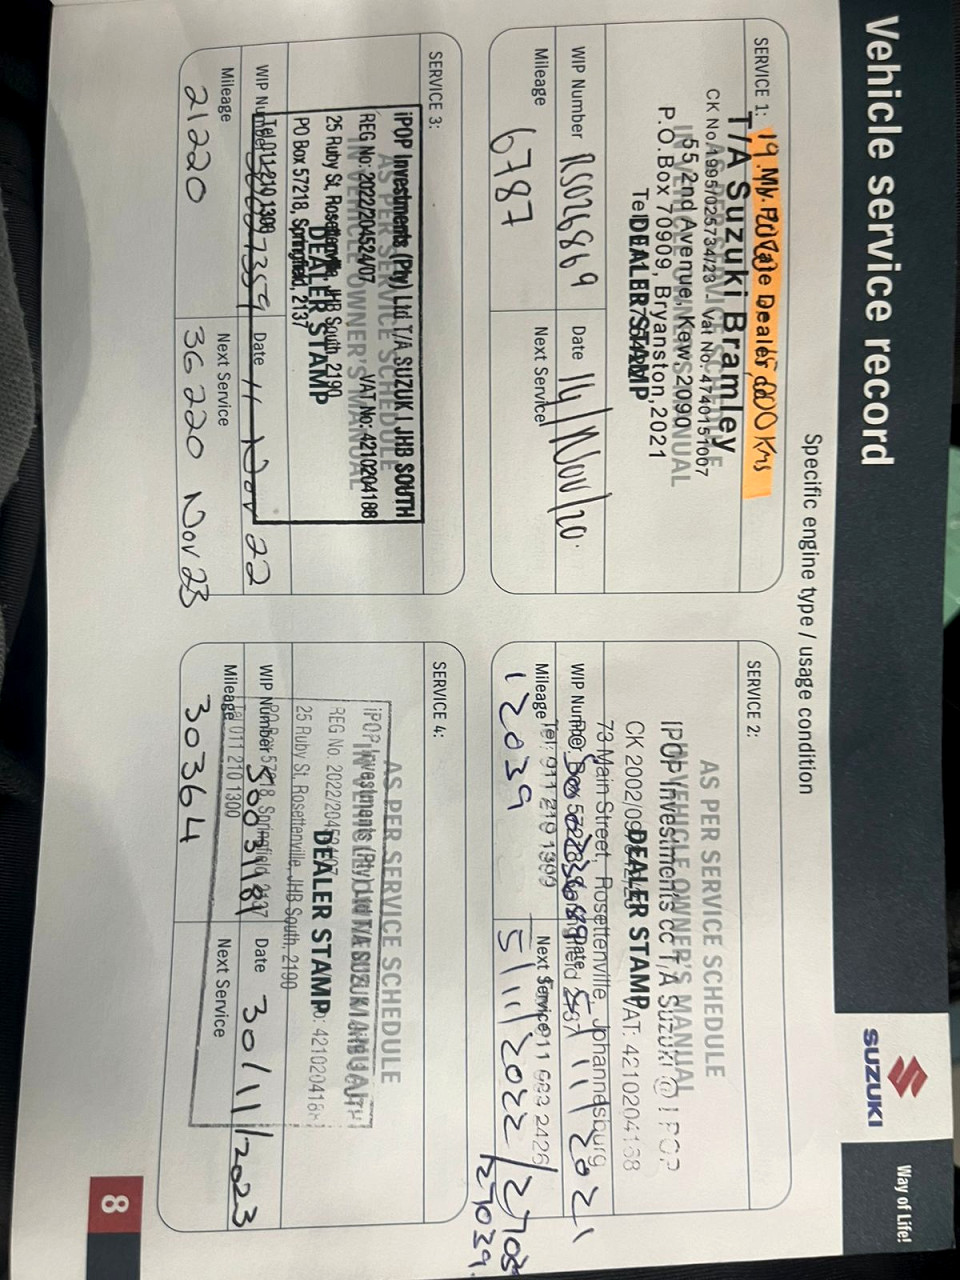 Vehicle service record
SUZUKI
Way of Life!
Specific engine type / usage condition
SERVICE 1:
T/A Suzuki Bramley
CK No.1995/025734/23 Vat No. 4740151007
55 2nd Avenue, Kew, 2090
P.O.Box 70909, Bryanston, 2021
DEALER STAMP
WIP Number RS026869
Date 14/Nov/20.
Mileage 6787
Next Service
SERVICE 2:
AS PER SERVICE SCHEDULE
IN VEHICLE OWNER'S MANUAL
IPOP Investments cc T/A Suzuki @ IPOP
CK 2002/09
VAT: 4210204168
DEALER STAMP
73 Main Street, Rosettenville, Johannesburg
WIP Number
Date 5/11/2021
Tel: 011 210 1300
Mileage 12039
Next Service 5/11/2022 /27039
27039.
SERVICE 3:
AS PER SERVICE SCHEDULE
IN VEHICLE OWNER'S MANUAL
iPOP Investments (Pty) Ltd T/A SUZUKI JHB SOUTH
REG No: 2022/204524/07 VAT No: 4210204168
25 Ruby St, Rosettenville, JHB South, 2190
DEALER STAMP
PO Box 57218, Springfield, 2137
Tel 011 210 1300
WIP Number
Date 11 Nov 22
Mileage 21220
Next Service 36220 Nov 23
SERVICE 4:
AS PER SERVICE SCHEDULE
IN VEHICLE OWNER'S MANUAL
iPOP Investments (Pty) Ltd T/A SUZUKI JHB SOUTH
REG No. 2022/20452
DEALER STAMP
25 Ruby St. Rosettenville, JHB South, 2190
PO Box 57218, Springfield, 2137
WIP Number
Date 30/11/2023
Tel 011 210 1300
Mileage 30364
Next Service
8